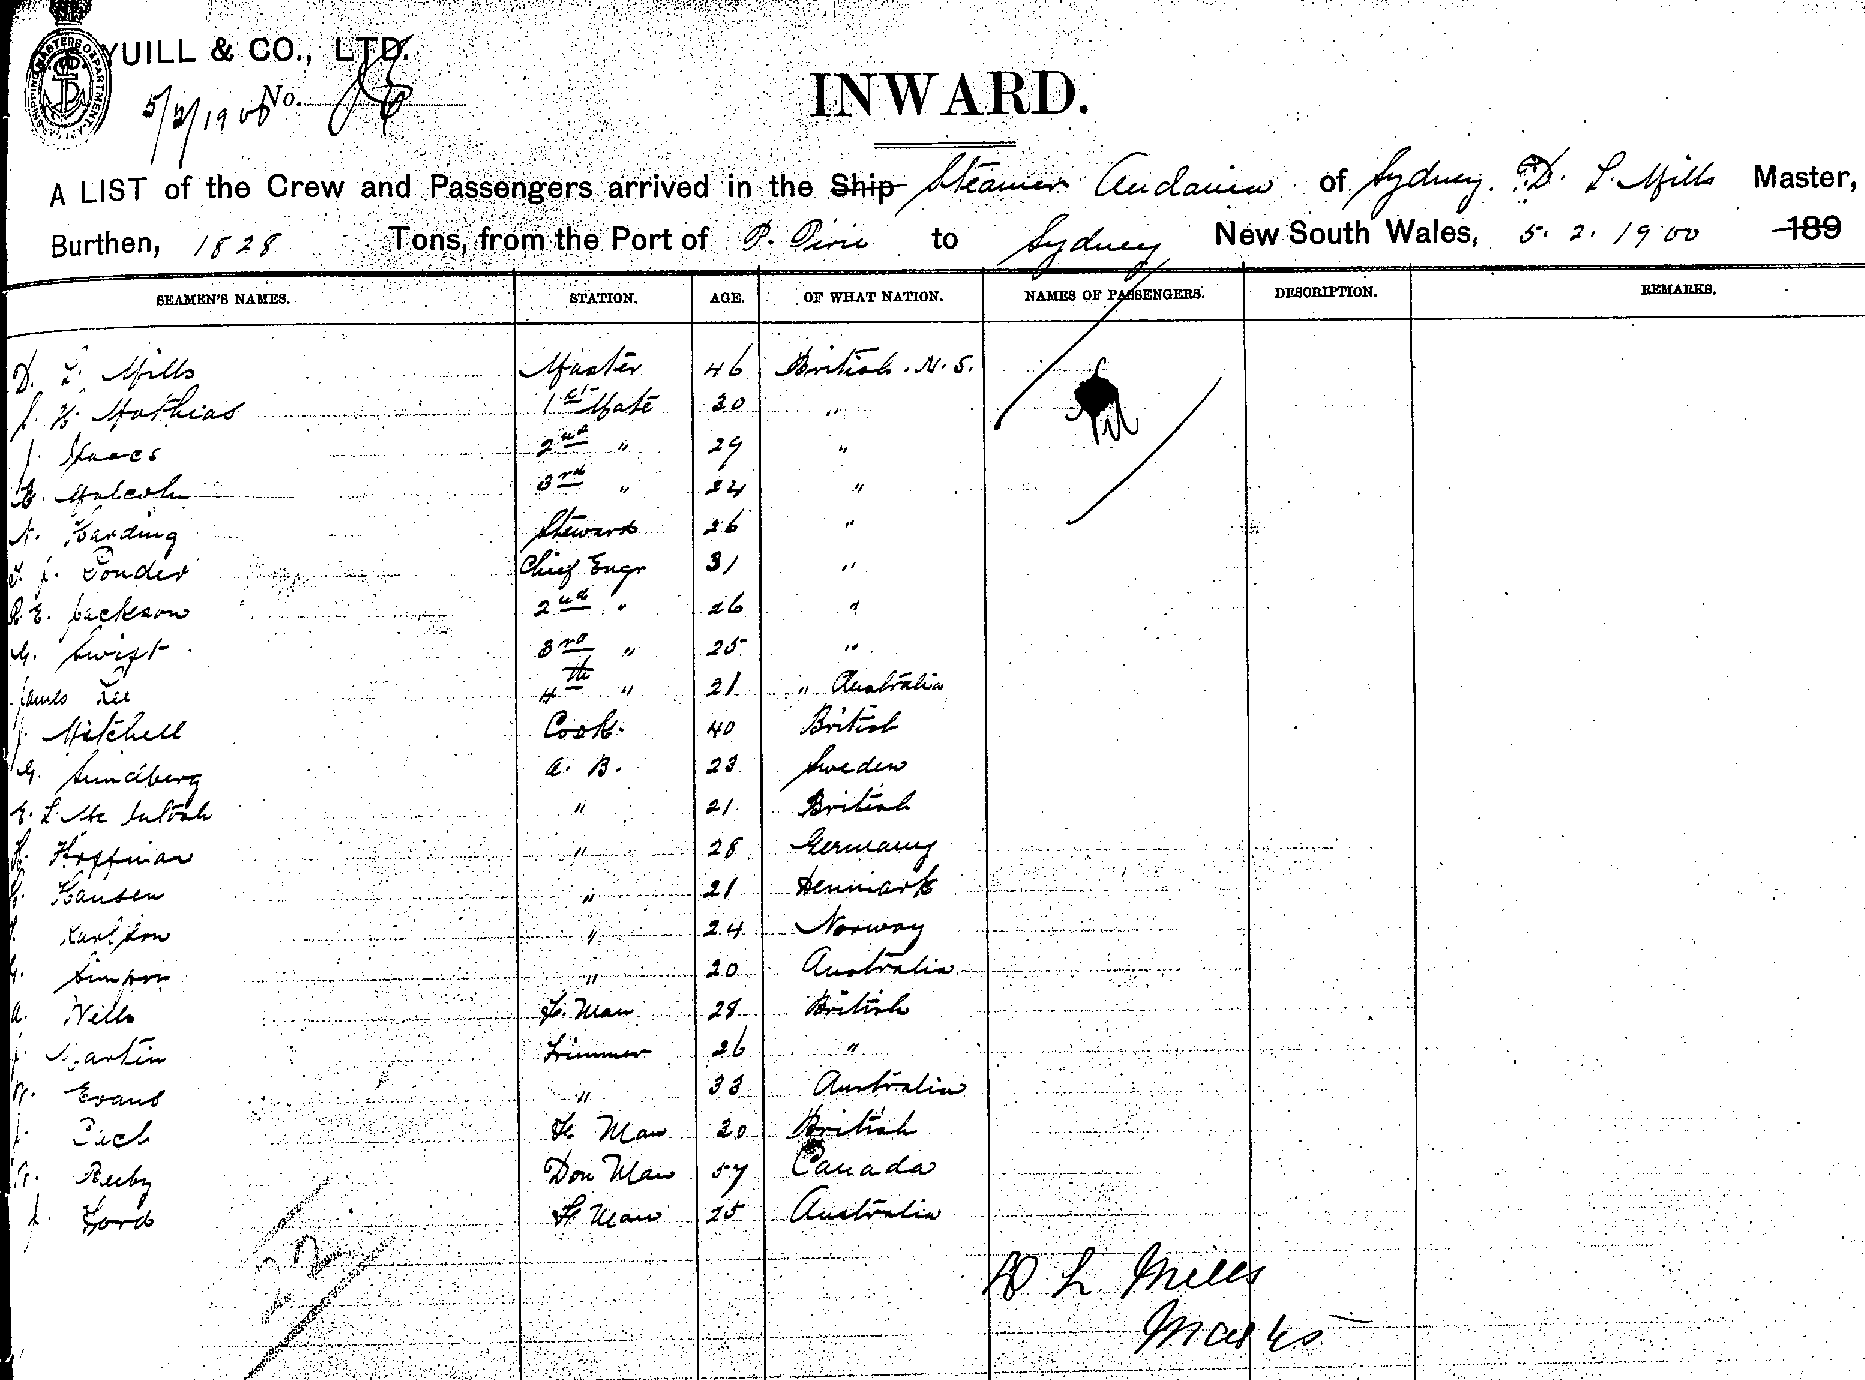 YUILL & CO., LTD.
5/2/1900 No.
INWARD.
A LIST of the Crew and Passengers arrived in the Ship Steamer of Sydney. D. L. Mills Master,
Burthen, 1828 Tons, from the Port of P. Pirie to Sydney New South Wales, 5. 2. 1900 189
SEAMEN'S NAMES. STATION. AGE. OF WHAT NATION. NAMES OF PASSENGERS. DESCRIPTION. REMARKS.
D. L. Mills Master 46 British. N. S.
J. H. Mathias 1st Mate 30 "
J. Isaacs 2nd " 29 "
Malcolm 3rd " 24 "
Harding Steward 26 "
J. Ponder Chief Engr 31 "
R. E. Jackson 2nd " 26 "
G. Swift 3rd " 25 "
James Lee 4th " 21 " Australia
J. Mitchell Cook. 40 British
G. Sundberg A. B. 23 Sweden
E. L. Mc Intosh " 21 British
Hoffman " 28 Germany
Hansen " 21 Denmark
Karlson " 24 Norway
Simpson " 20 Australia
A. Wells F. Man 28 British
J. Martin Trimmer 26 "
W. Evans " 33 Australia
J. F. Man 30 British
Ruby Don Man 57 Canada
J. Ford F. Man 25 Australia
D L Mills
Master